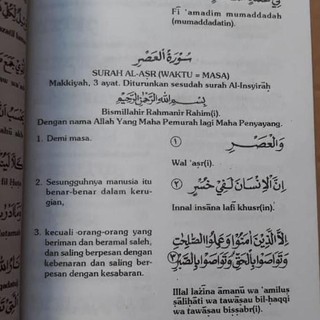 فِيْ عَمَدٍ مُّمَدَّدَةٍ
Fī ‘amadim mumaddadah
(mumaddadatin).
سُوْرَةُ الْعَصْرِ
SURAH AL-AṢR (WAKTU = MASA)
Makkiyah, 3 ayat. Diturunkan sesudah surah Al-Insyirāḥ
بِسْمِ اللهِ الرَّحْمٰنِ الرَّحِيْمِ
Bismillahir Rahmanir Rahim(i).
Dengan nama Allah Yang Maha Pemurah lagi Maha Penyayang.
1. Demi masa.
وَالْعَصْرِ ۝١
Wal ‘aṣr(i).
2. Sesungguhnya manusia itu
benar-benar dalam keru-
gian,
اِنَّ الْاِنْسَانَ لَفِيْ خُسْرٍ ۝٢
Innal insāna lafī khusr(in).
3. kecuali orang-orang yang
beriman dan beramal saleh,
dan saling berpesan dengan
kebenaran dan saling ber-
pesan dengan kesabaran.
اِلَّا الَّذِيْنَ اٰمَنُوْا وَعَمِلُوا الصّٰلِحٰتِ
وَتَوَاصَوْا بِالْحَقِّ وَتَوَاصَوْا بِالصَّبْرِ ۝٣
Illal lażīna āmanū wa ‘amiluṣ
ṣāliḥāti wa tawāṣau bil-ḥaqqi
wa tawāṣau biṣṣabr(i).